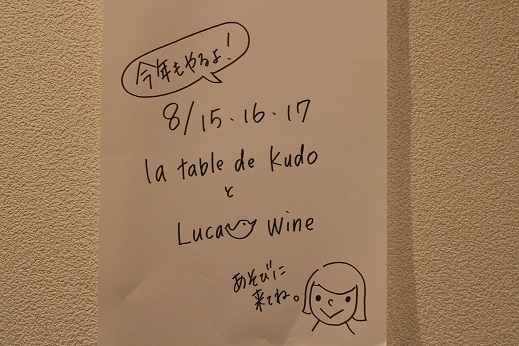 今年もやるよ!
8/15.16.17
la table de Kudo
と
Luca wine
あそびに
来てね。